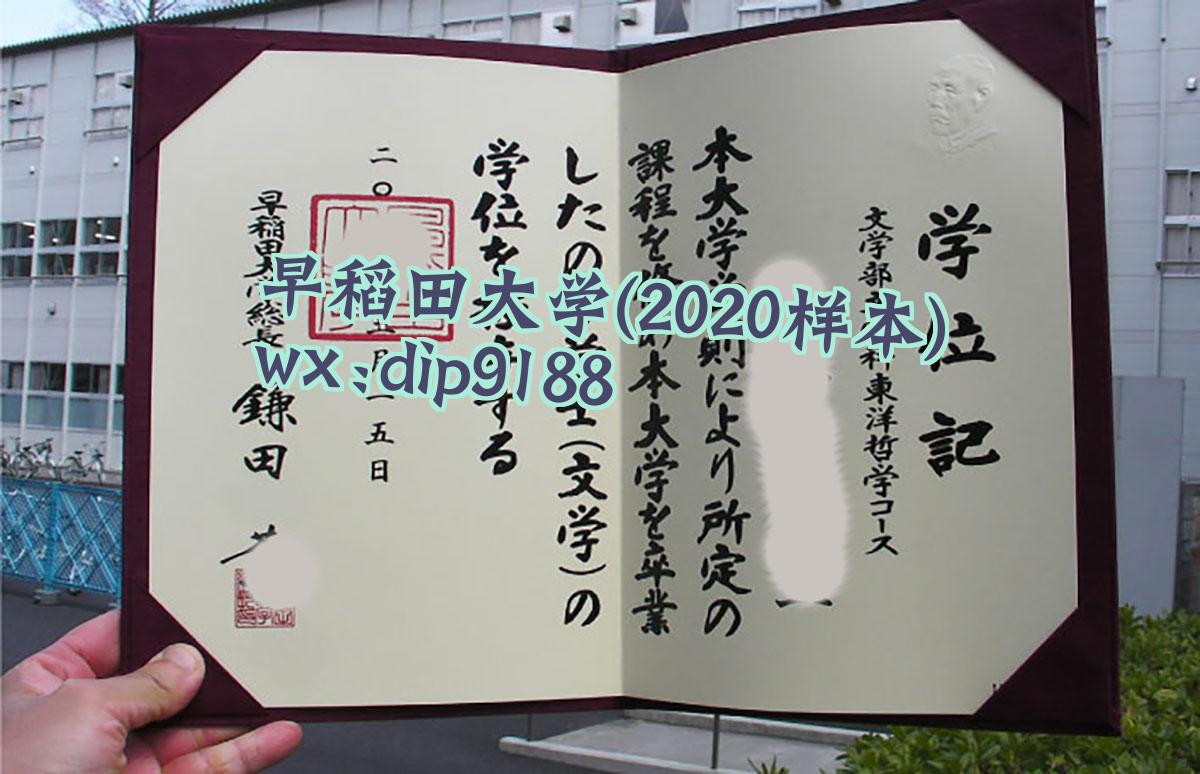 学位記
文学部 科東洋哲学コース
本大学学則により所定の
課程を修め本大学を卒業
したので学士(文学)の
学位を授与する
二〇 月一五日
早稲田大学総長 鎌田
早稲田大学(2020样本)
wx:dip9188